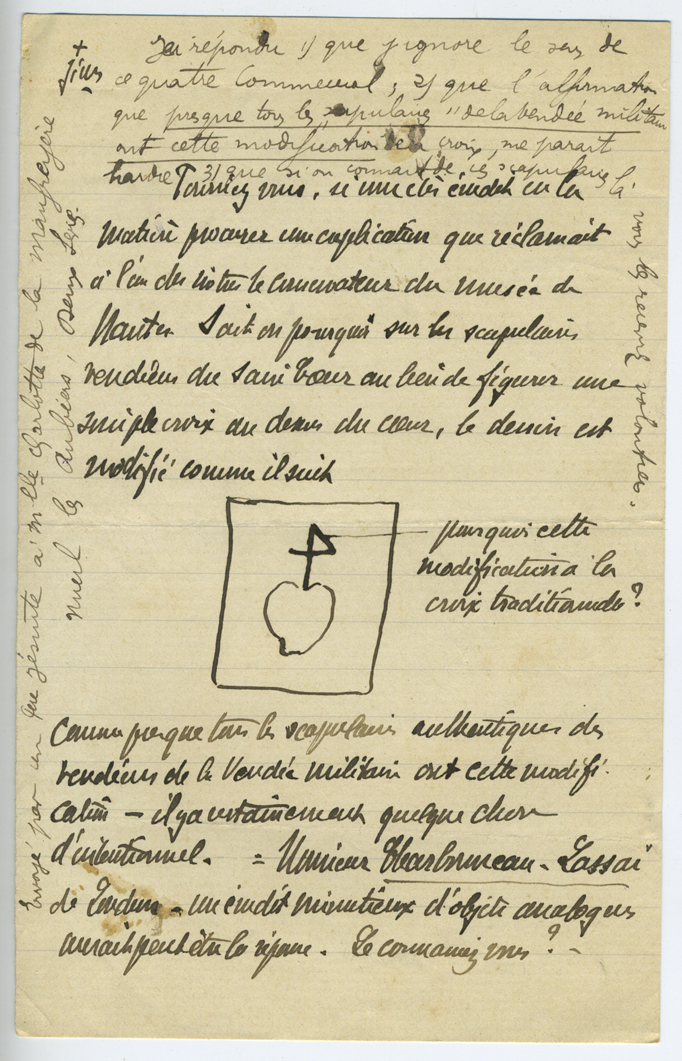 +
J'ai répondu 1) que j'ignore le sens de
ce quatre Commercial ; 2) que l'affirmation
que presque tous les "scapulaires" de la vendée militaire
ont cette modification de la croix, me parait
hardie 3) que si on connait de ces scapulaires là
vous les recevrez volontiers.
Pourriez vous, si une clés érudit en la
matière procurer une explication que réclamait
à l'un des notres le conservateur du musée de
Nantes. Sait on pourquoi sur les scapulaires
vendéens du Sacré Cœur au lieu de figurer une
simple croix au dessus du cœur, le dessin est
modifié comme il suit
pourquoi cette
modification à la
croix traditionnelle ?
Comme presque tous les scapulaires authentiques des
vendéens de la Vendée militaire ont cette modifi-
cation – il y a certainement quelque chose
d'intentionnel. = Monsieur Charbonneau-Lassay
de Loudun – un érudit minutieux d'objets analogues
aurait peut être la réponse. Le connaissez vous ? –
Envoyé par un père jésuite à Mlle Charlotte de la Maufrayère
Nueil les Aubiers, Deux Sèvres